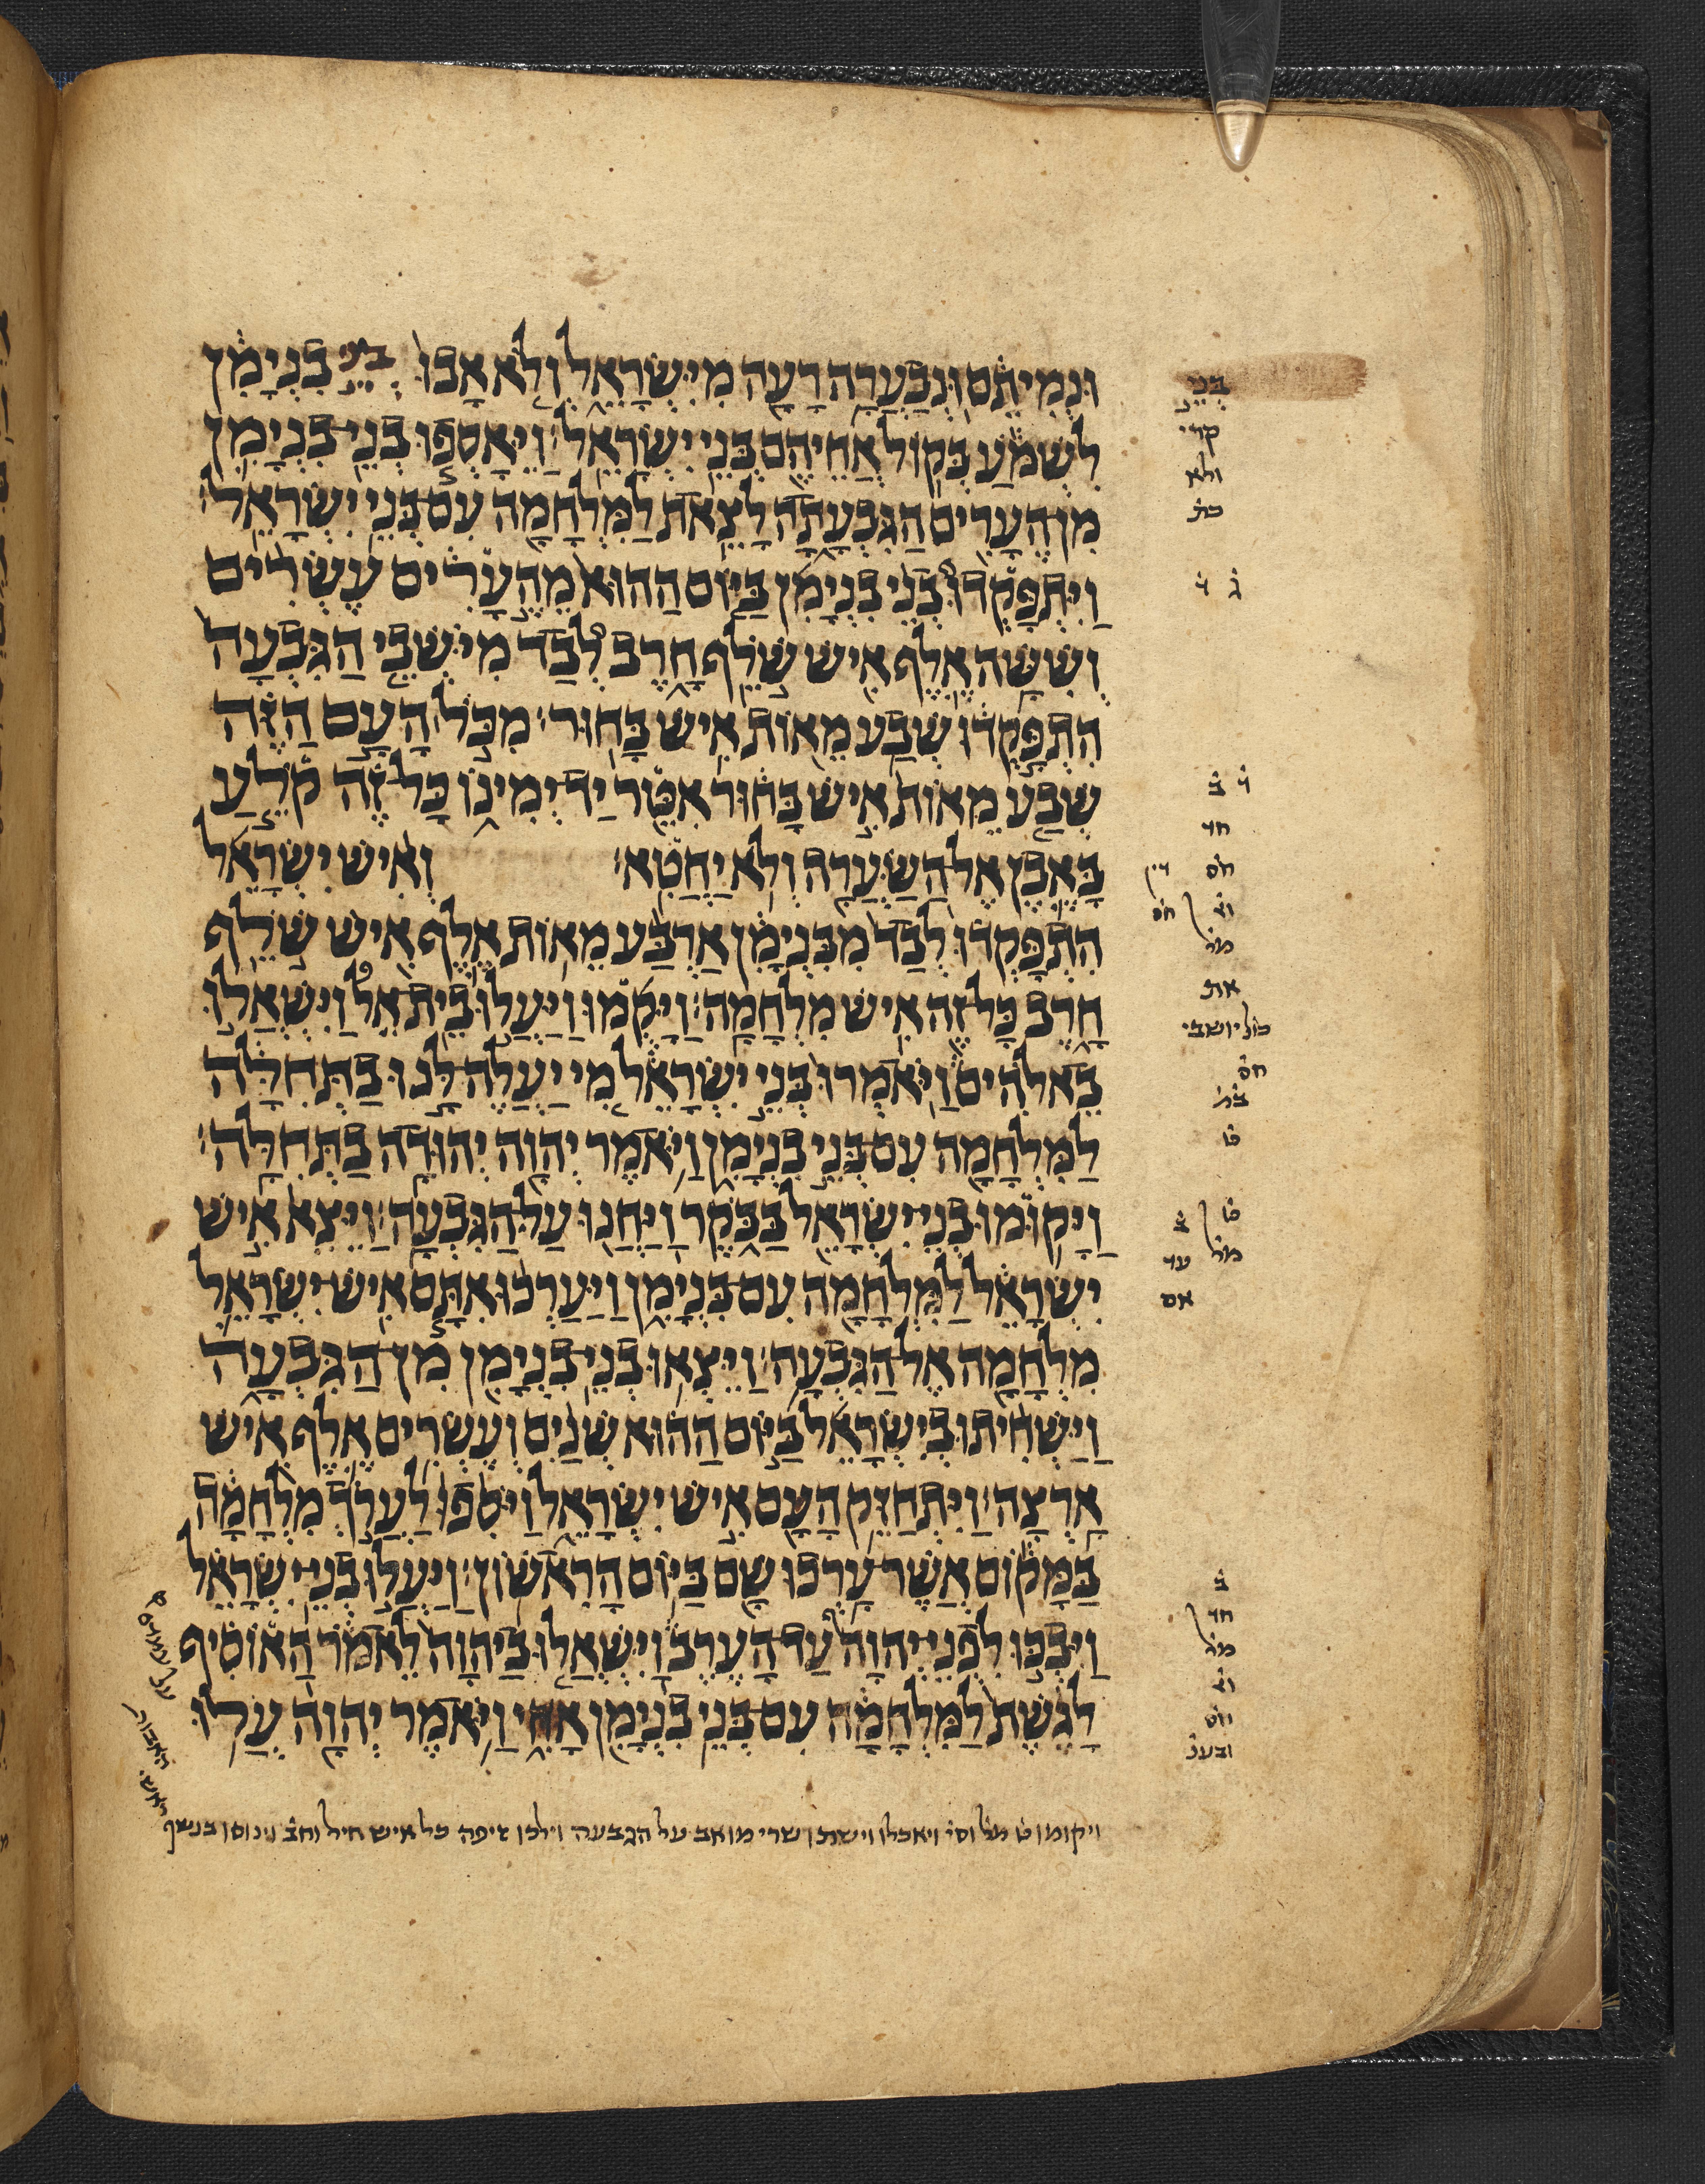 וּנְמִיתֵם וּנְבַעֲרָה רָעָה מִיִּשְׂרָאֵל וְלֹא אָבוּ בני בִּנְיָמִן
לִשְׁמֹעַ בְּקוֹל אֲחֵיהֶם בְּנֵי יִשְׂרָאֵל׃ וַיֵּאָסְפוּ בְנֵי בִנְיָמִן
מִן הֶעָרִים הַגִּבְעָתָה לָצֵאת לַמִּלְחָמָה עִם בְּנֵי יִשְׂרָאֵל׃
וַיִּתְפָּקְדוּ בְנֵי בִנְיָמִן בַּיּוֹם הַהוּא מֵהֶעָרִים עֶשְׂרִים
וְשִׁשָּׁה אֶלֶף אִישׁ שֹׁלֵף חָרֶב לְבַד מִיֹּשְׁבֵי הַגִּבְעָה
הִתְפָּקְדוּ שְׁבַע מֵאוֹת אִישׁ בָּחוּר׃ מִכֹּל הָעָם הַזֶּה
שְׁבַע מֵאוֹת אִישׁ בָּחוּר אִטֵּר יַד יְמִינוֹ כָּל זֶה קֹלֵעַ
בָּאֶבֶן אֶל הַשַּׂעֲרָה וְלֹא יַחֲטִא׃ וְאִישׁ יִשְׂרָאֵל
הִתְפָּקְדוּ לְבַד מִבִּנְיָמִן אַרְבַּע מֵאוֹת אֶלֶף אִישׁ שֹׁלֵף
חָרֶב כָּל זֶה אִישׁ מִלְחָמָה׃ וַיָּקֻמוּ וַיַּעֲלוּ בֵית אֵל וַיִּשְׁאֲלוּ
בֵאלֹהִים וַיֹּאמְרוּ בְּנֵי יִשְׂרָאֵל מִי יַעֲלֶה לָּנוּ בַתְּחִלָּה
לַמִּלְחָמָה עִם בְּנֵי בִנְיָמִן וַיֹּאמֶר יְהוָה יְהוּדָה בַתְּחִלָּה׃
וַיָּקוּמוּ בְנֵי יִשְׂרָאֵל בַּבֹּקֶר וַיַּחֲנוּ עַל הַגִּבְעָה׃ וַיֵּצֵא אִישׁ
יִשְׂרָאֵל לַמִּלְחָמָה עִם בִּנְיָמִן וַיַּעַרְכוּ אִתָּם אִישׁ יִשְׂרָאֵל
מִלְחָמָה אֶל הַגִּבְעָה׃ וַיֵּצְאוּ בְנֵי בִנְיָמִן מִן הַגִּבְעָה
וַיַּשְׁחִיתוּ בְיִשְׂרָאֵל בַּיּוֹם הַהוּא שְׁנַיִם וְעֶשְׂרִים אֶלֶף אִישׁ
אָרְצָה׃ וַיִּתְחַזֵּק הָעָם אִישׁ יִשְׂרָאֵל וַיֹּסִפוּ לַעֲרֹךְ מִלְחָמָה
בַּמָּקוֹם אֲשֶׁר עָרְכוּ שָׁם בַּיּוֹם הָרִאשׁוֹן׃ וַיַּעֲלוּ בְנֵי יִשְׂרָאֵל
וַיִּבְכּוּ לִפְנֵי יְהוָה עַד הָעֶרֶב וַיִּשְׁאֲלוּ בַיהוָה לֵאמֹר הַאוֹסִיף
לָגֶשֶׁת לַמִּלְחָמָה עִם בְּנֵי בִנְיָמִן אָחִי וַיֹּאמֶר יְהוָה עֲלוּ
ויקומו ט מל וסי ויאכלו וישתו שרי מואב על הגבעה וילכו זיפה כל איש חיל וינוסו בנשף
בְּנֵי
קרי
ולא
כת
ג̇ ו̇
ו̇ ב̇
חד
חס
מל
את
כול יושבי
חס
ט̇
ט̇ ב̇
מל עד
אם
ב̇
חד
מל
חס